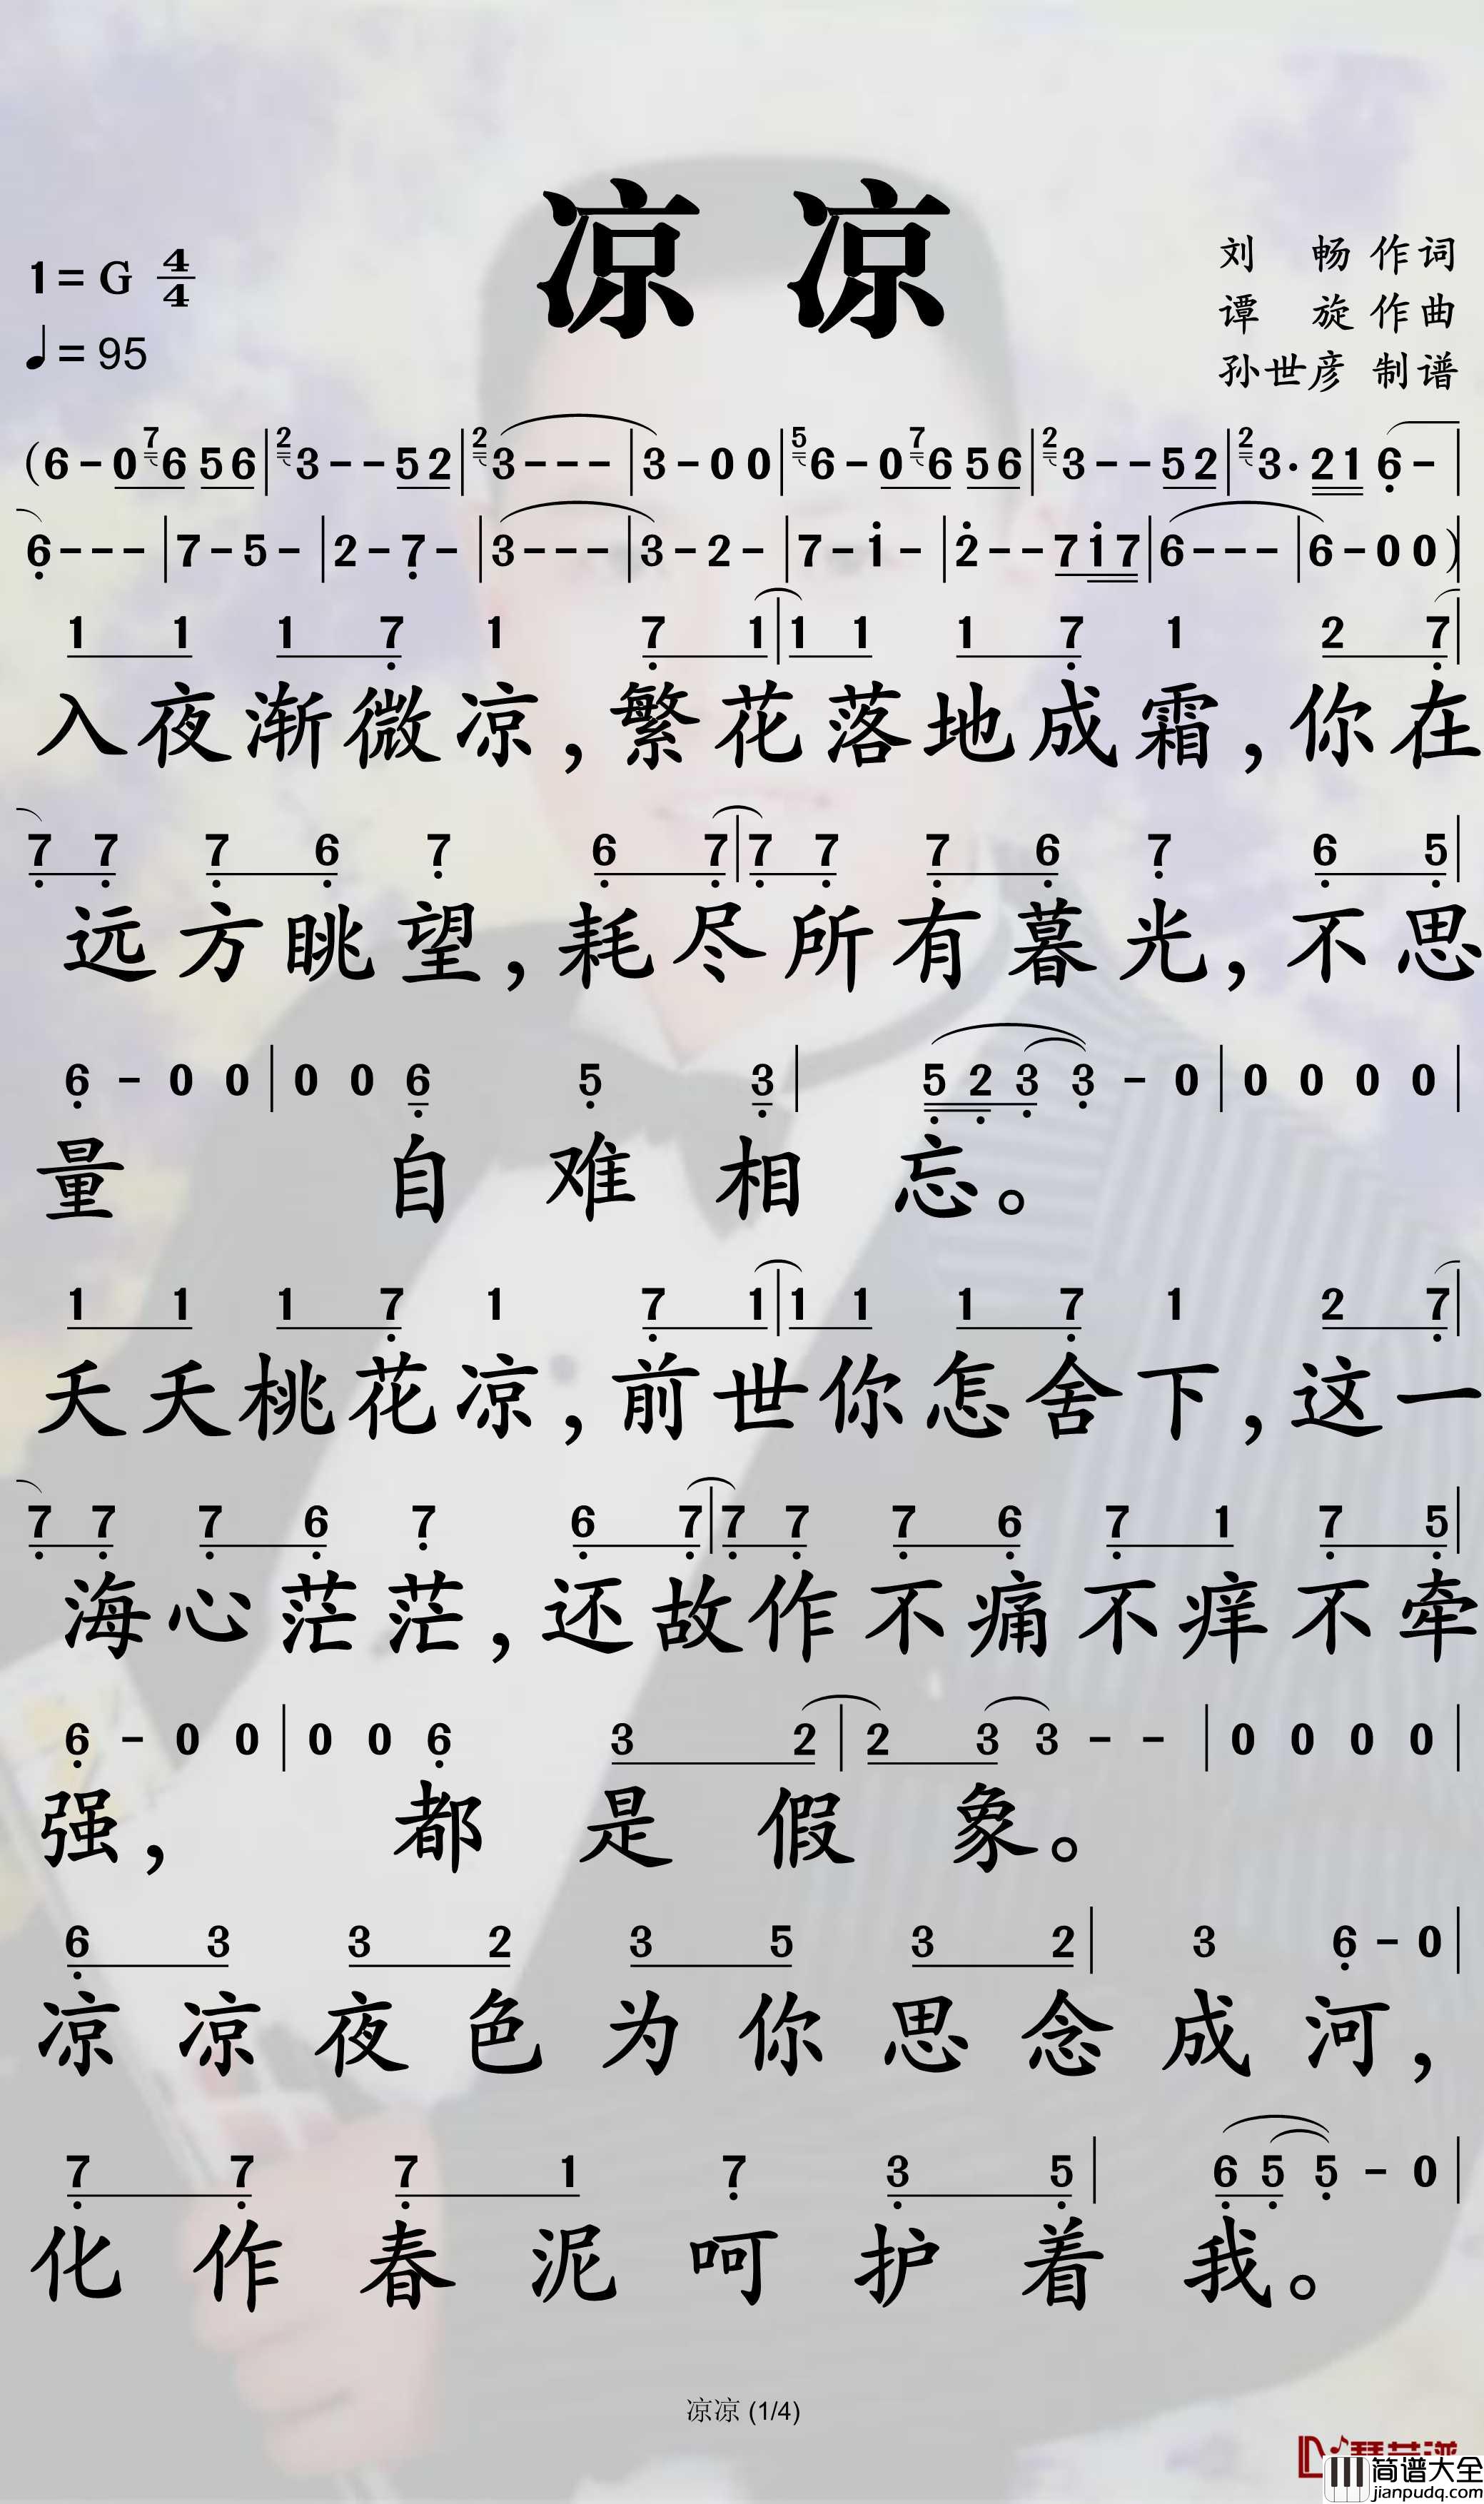 凉 凉
1=G 4/4
♩=95
刘 畅 作词
谭 旋 作曲
孙世彦 制谱
(6-0 7 6 56|2 3--52|2 3---|3-00|5 6-0 7 6 56|2 3--52|2 3·21 6-|
6---|7-5-|2-7-|3---|3-2-|7-1-|2--717|6---|6-00)
1 1 1 7 1 7 1|1 1 1 7 1 2 7|
入夜渐微凉,繁花落地成霜,你在
7 7 7 6 7 6 7|7 7 7 6 7 6 5|
远方眺望,耗尽所有暮光,不思
6 - 0 0|0 0 6 5 3|5 2 3 3 - 0|0 0 0 0|
量 自难相忘。
1 1 1 7 1 7 1|1 1 1 7 1 2 7|
夭夭桃花凉,前世你怎舍下,这一
7 7 7 6 7 6 7|7 7 7 6 7 1 7 5|
海心茫茫,还故作不痛不痒不牵
6 - 0 0|0 0 6 3 2|2 3 3 - -|0 0 0 0|
强, 都是假象。
6 3 3 2 3 5 3 2|3 6 - 0|
凉凉夜色为你思念成河,
7 7 7 1 7 3 5|6 5 5 - 0|
化作春泥呵护着我。
凉凉 (1/4)
简谱大全
jianpudq.com